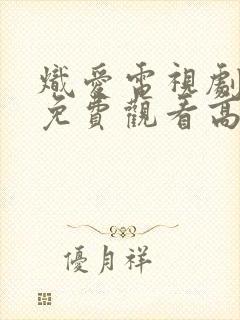 熾愛電視劇
免費觀看高
優月祥